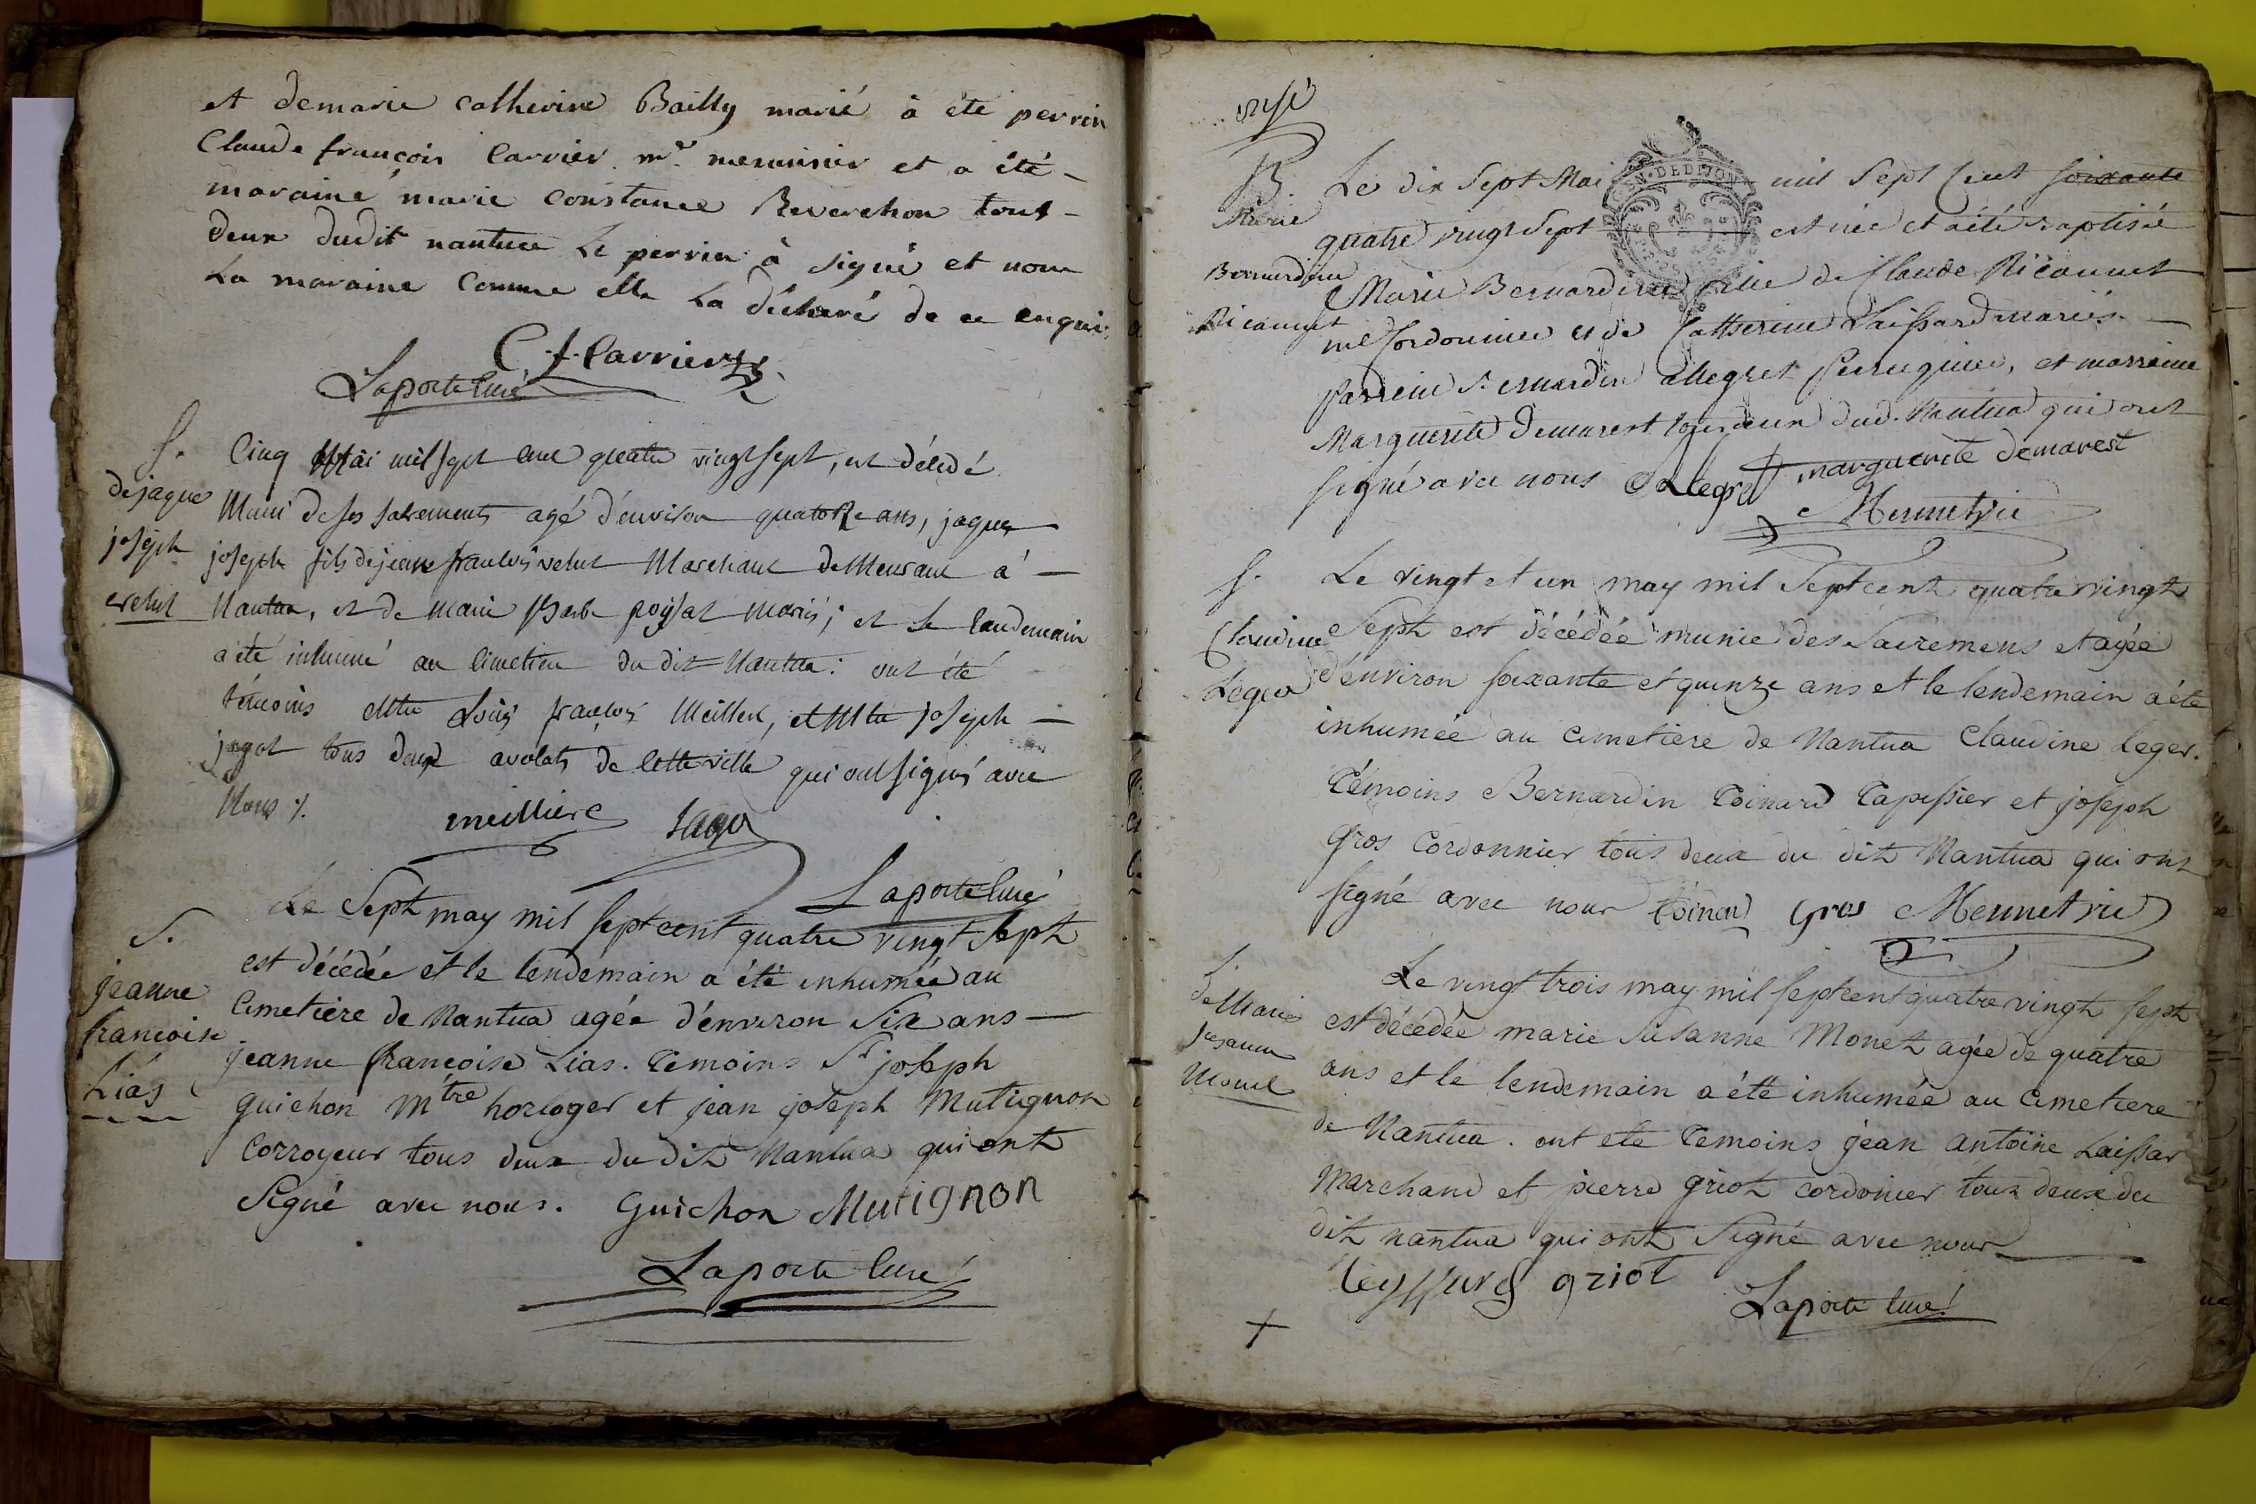 et demarie catherine Bailly marié à été perrin
Claude françois Carrier me. menuisier et a été –
maraine marie Constance Reverchon tout –
deux dudit nantua Le perrin à signé et non
La maraine comme elle La déclaré de ce enquis
C f Carrier
Laporte curé
S. Cinq Mai mil sept cent quatre vingt sept, est décédé
de jaque Muni de ses sacrements agé d'environ quatorze ans, jaque
joseph joseph fils de jean françois velut Marchant demeurant à –
velut Nantua, et de marie Barbe poysat mariés; et le landemain
a été inhumé au Cimetiere du dit Nantua: ont été
témoins Mtre Loüis françois Meillier, et Mtre joseph –
jagot tous deux avocats de cette ville qui ont signés avec
Nous %.
meilliere Jago
Laporte curé
S. Le Sept may mil sept cent quatre vingt Sept
jeanne est décédée et le lendemain a été inhumée au
francoise Cimetiere de Nantua agée d'environ Six ans –
Liás jeanne francoise Lias. Témoins Sr joseph
guichon Mtre horloger et jean joseph Mutignon
Corroyeur tous deux du dit Nantua qui ont
Signé avec nous. Guichon Mutignon
Laporte Curé
GEN. DE DIJON
B. Le dix Sept Mai mil Sept Cent soixante
Marie quatre vingt Sept est née et a été Baptisée
Bernardine Marie Bernardine fille de Claude Ricannet
Ricannet me Cordonnier et de Catherine Laissard mariés. –
Parrein Bernardin allegret Perruquier, et marreine
Marguerite Demarest tous deux dud. Nantua qui ont
signé avec nous allegret marguerite demarest
Mermetrie
S. Le vingt et un may mil Sept cent quatre vingt
Claudine Sept est décédée munie des Sacremens et agée
Leger d'environ soixante et quinze ans et le lendemain a été
inhumée au cimetiere de Nantua Claudine Leger.
Témoins Bernardin Coinard Tapissier et joseph
gros Cordonnier tous deux du dit Nantua qui ont
signé avec nous Coinard Gros Mermetrie
S. Le vingt trois may mil sept cent quatre vingt sept
de Marie est décédée marie Susanne Monet agée de quatre
Susanne ans et le lendemain a été inhumée au cimetiere
Monet de Nantua. ont été Temoins jean antoine Laissar
Marchand et pierre griot cordonier tous deux du
dit nantua qui ont Signé avec nous
leyssard griot
Laporte curé